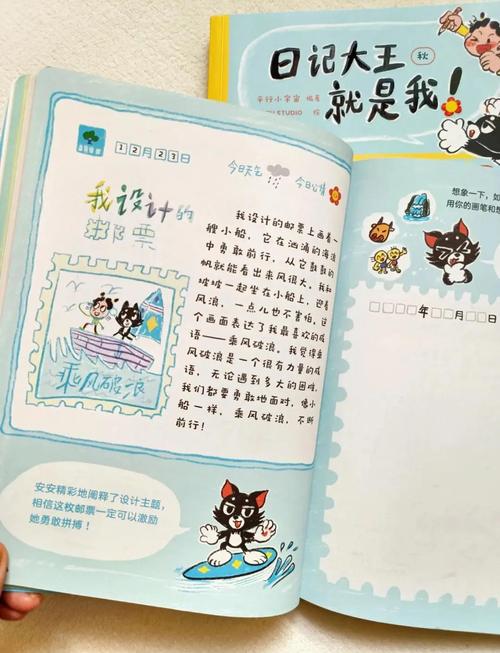 日记大王
秋
就是我!
平行小宇宙 编著
STUDIO 绘
12月23日
今日天气
今日心情
我设计的
邮票
我设计的邮票上画着一
艘小船,它在汹涌的海浪
中勇敢前行,从它鼓鼓的
帆就能看出来风很大,我和
坡坡一起坐在小船上,迎着
风浪,一点儿也不害怕,这
个画面表达了我最喜欢的成
语——乘风破浪。我觉得乘
风破浪是一个很有力量的成
语,无论遇到多大的困难,
我们都要勇敢地面对,像小
船一样,乘风破浪,不断
前行!
乘风破浪
安安精彩地阐释了设计主题,
相信这枚邮票一定可以激励
她勇敢拼搏!
想象一下,如
用你的画笔和
年 月 日